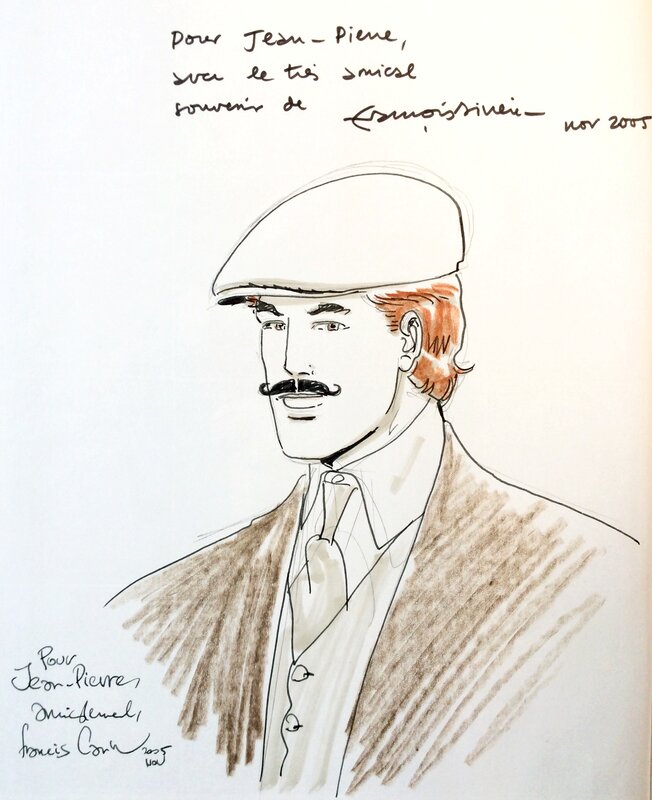 Pour Jean-Pierre,
avec le très amical
souvenir de François Rivière nov 2005
Pour
Jean-Pierre,
amicalement,
Francis Carin 2005
nov